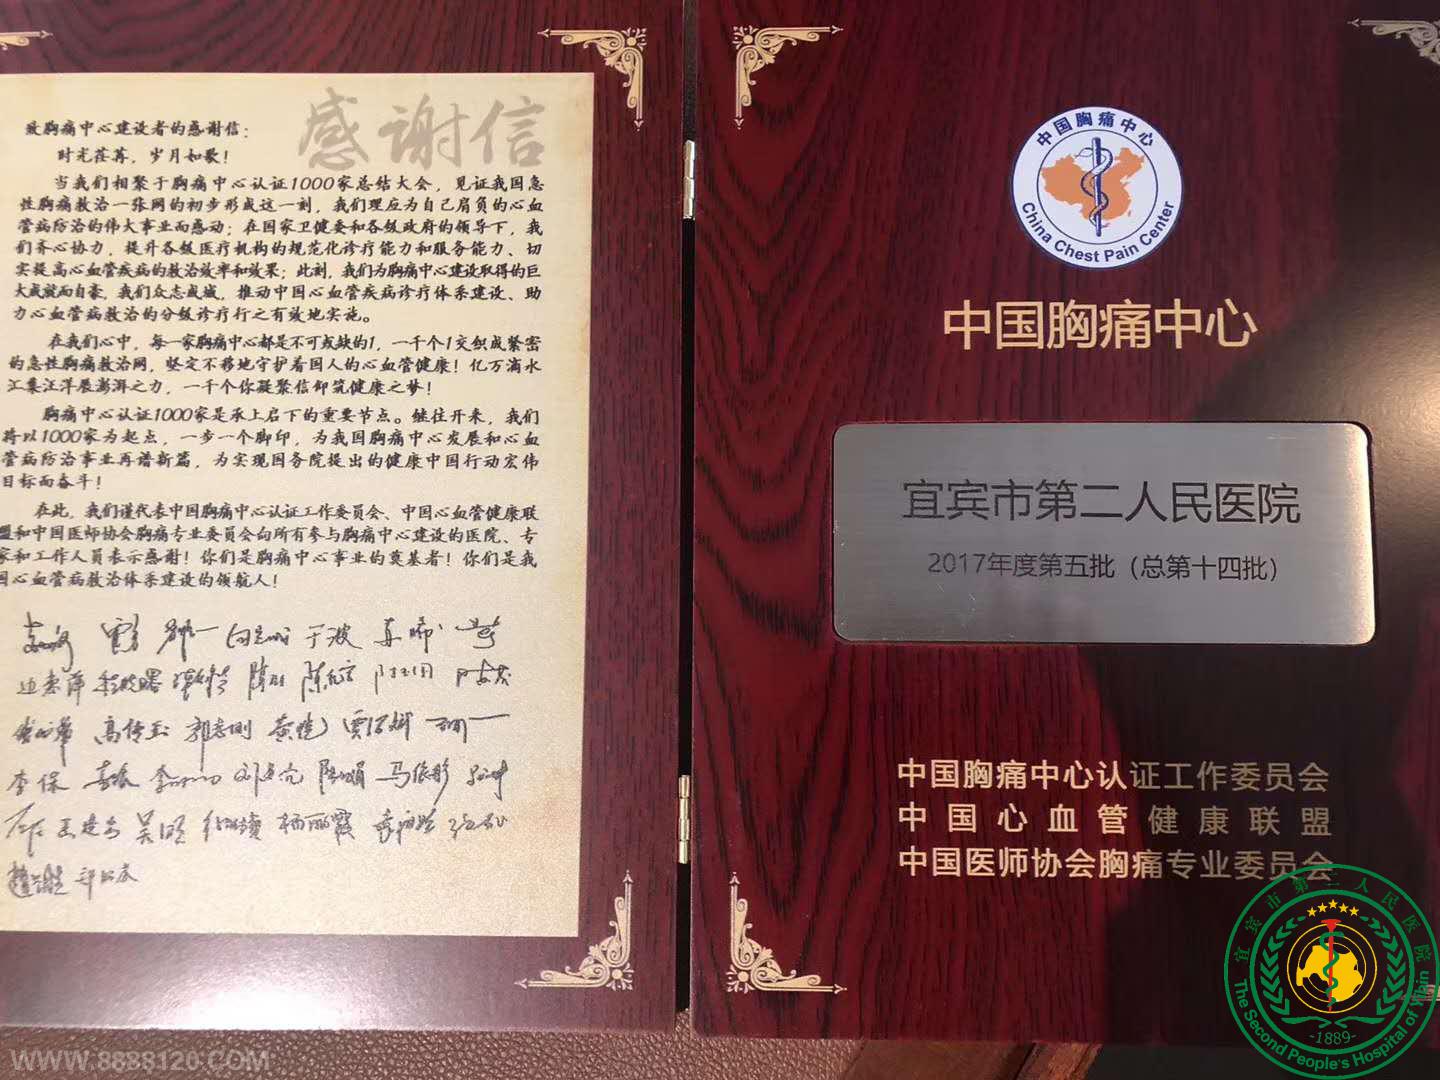 感谢信
致胸痛中心建设者的感谢信：
时光荏苒，岁月如歌！
当我们相聚于胸痛中心认证1000家总结大会，见证我国急
性胸痛救治一张网的初步形成这一刻，我们理应为自己肩负的心血
管病防治的伟大事业而感动；在国家卫健委和各级政府的领导下，我
们齐心协力，提升各级医疗机构的规范化诊疗能力和服务能力、切
实提高心血管疾病的救治效率和效果；此刻，我们为胸痛中心建设取得的巨
大成就而自豪，我们众志成城，推动中国心血管疾病诊疗体系建设、助
力心血管病救治的分级诊疗行之有效地实施。
在我们心中，每一家胸痛中心都是不可或缺的1，一千个1交织成紧密
的急性胸痛救治网，坚定不移地守护着国人的心血管健康！亿万滴水
江集汪洋展澎湃之力，一千个你凝聚信仰筑健康之梦！
胸痛中心认证1000家是承上启下的重要节点。继往开来，我们
将以1000家为起点，一步一个脚印，为我国胸痛中心发展和心血
管病防治事业再谱新篇，为实现国务院提出的健康中国行动宏伟
目标而奋斗！
在此，我们谨代表中国胸痛中心认证工作委员会、中国心血管健康联
盟和中国医师协会胸痛专业委员会向所有参与胸痛中心建设的医院、专
家和工作人员表示感谢！你们是胸痛中心事业的奠基者！你们是我
国心血管病救治体系建设的领航人！
于波
高传玉
李保
马依彤
吴明
杨丽霞
中国胸痛中心
China Chest Pain Center
中国胸痛中心
宜宾市第二人民医院
2017年度第五批（总第十四批）
中国胸痛中心认证工作委员会
中国心血管健康联盟
中国医师协会胸痛专业委员会
宜宾市第二人民医院
-1889-
The Second People's Hospital of Yibin
WWW.8888120.COM